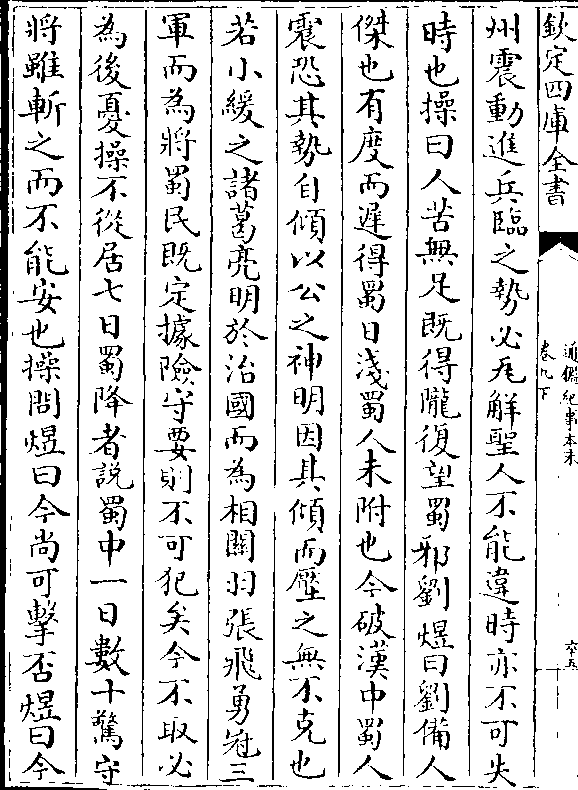 欽定四庫全書
通鑑紀事本末
卷九下
六五
州震動進兵臨之勢必瓦解聖人不能違時亦不可失
時也操曰人苦無足既得隴復望蜀邪劉煜曰劉備人
傑也有度而遲得蜀日淺蜀人未附也今破漢中蜀人
震恐其勢自傾以公之神明因其傾而壓之無不克也
若小緩之諸葛亮明於治國而為相關羽張飛勇冠三
軍而為將蜀民既定據險守要則不可犯矣今不取必
為後憂操不從居七日蜀降者説蜀中一日數十驚守
將雖斬之而不能安也操問煜曰今尚可擊否煜曰今